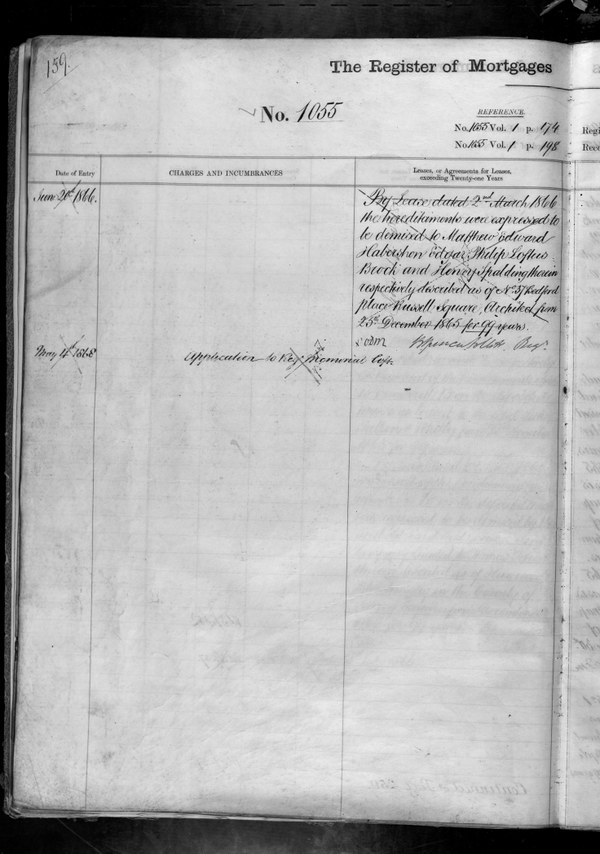 159.
The Register of Mortgages
No. 1055
REFERENCE.
No. 1055 Vol. 1 p. 174
No. 1055 Vol. 1 p. 198
Regi
Rece
Date of Entry
CHARGES AND INCUMBRANCES
Leases, or Agreements for Leases,
exceeding Twenty-one Years
June 20th 1866.
By Lease dated 2nd March 1866
the hereditaments were expressed to
be demised to Matthew Edward
Habershon Edgar Philip Loftus
Brock and Henry Spalding therein
respectively described as of No. 37 Bedford
place Russell Square, Architect from
25th December 1865 for 99 years.
Regr.
May 4th 1868
Application to Reg. Memorial